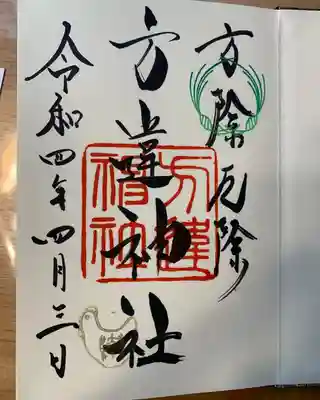 方除厄除
方違神社
令和四年四月三日